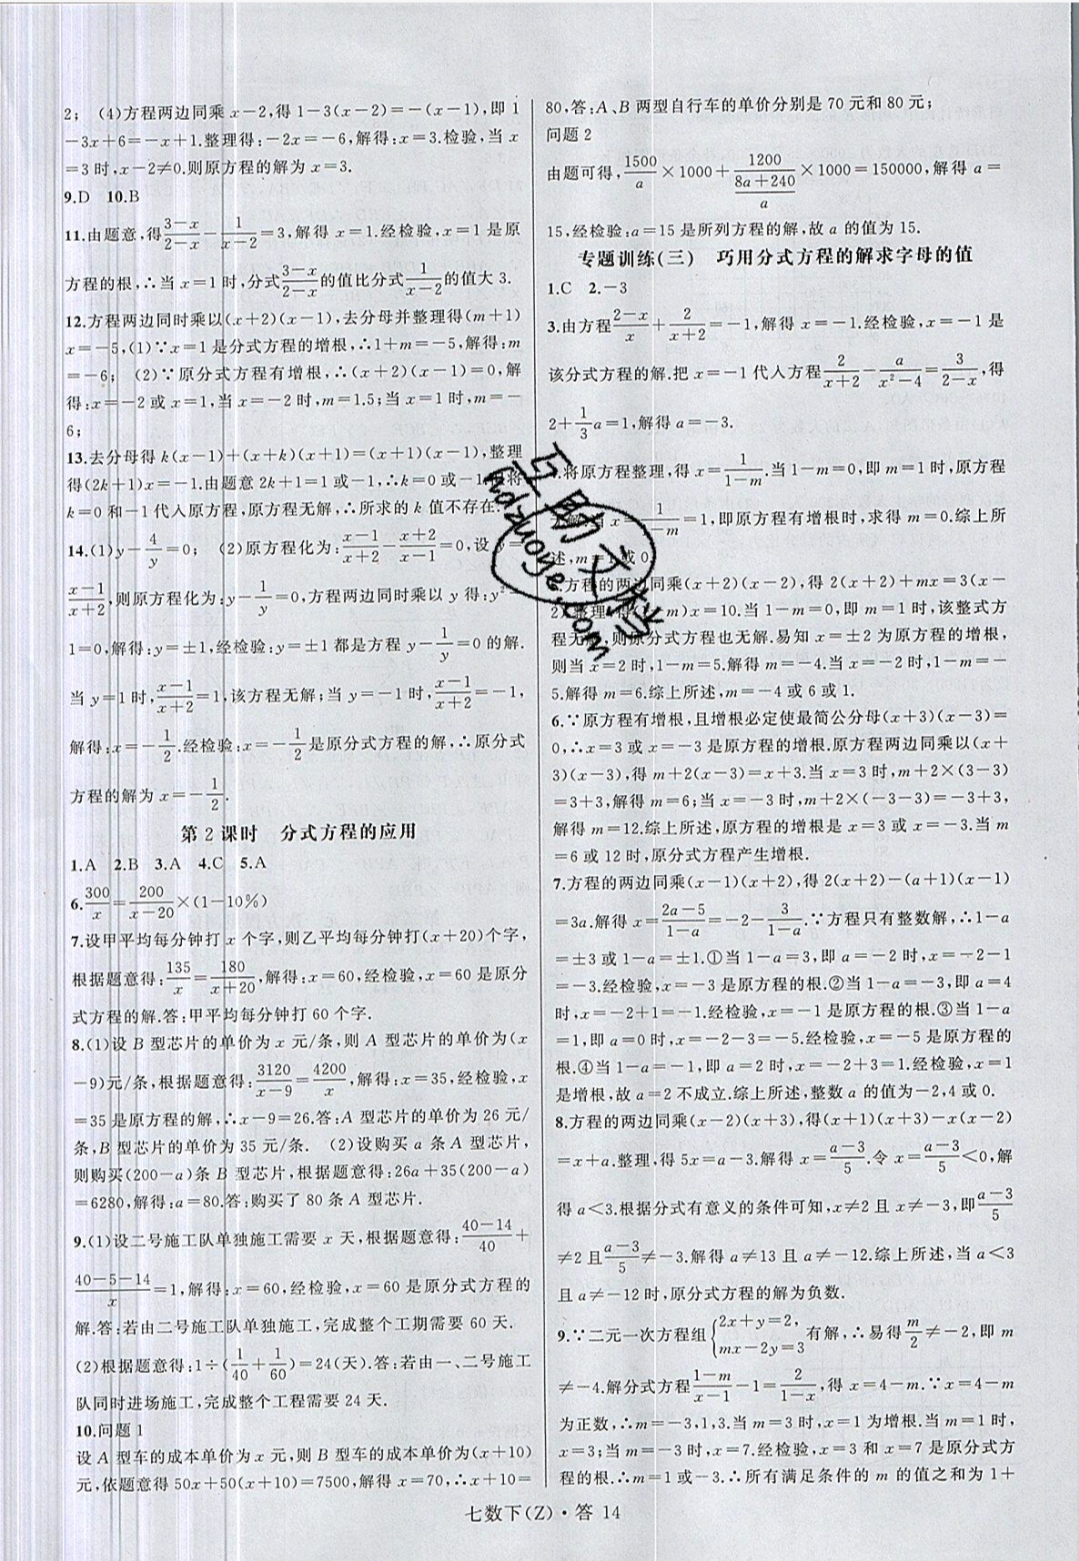 2； (4)方程两边同乘 x－2,得 1－3(x－2)＝－(x－1),即 1
－3x＋6＝－x＋1.整理得:－2x＝－6,解得:x＝3.检验,当 x
＝3 时,x－2≠0.则原方程的解为 x＝3.
9.D 10.B
11.由题意,得(3－x)/(2－x)－1/(x－2)＝3,解得 x＝1.经检验,x＝1 是原
方程的根,∴当 x＝1 时,分式(3－x)/(2－x)的值比分式1/(x－2)的值大 3.
12.方程两边同时乘以(x＋2)(x－1),去分母并整理得(m＋1)
x＝－5,(1)∵x＝1 是分式方程的增根,∴1＋m＝－5,解得:m
＝－6； (2)∵原分式方程有增根,∴(x＋2)(x－1)＝0,解
得:x＝－2 或 x＝1,当 x＝－2 时,m＝1.5;当 x＝1 时,m＝－
6;
13.去分母得 k(x－1)＋(x＋k)(x＋1)＝(x＋1)(x－1),整理
得(2k＋1)x＝－1.由题意 2k＋1＝1 或－1,∴k＝0 或－1.将
k＝0 和－1 代入原方程,原方程无解,∴所求的 k 值不存在.
14.(1)y－4/y＝0； (2)原方程化为:(x－1)/(x＋2)－(x＋2)/(x－1)＝0,设 y＝
(x－1)/(x＋2),则原方程化为:y－1/y＝0,方程两边同时乘以 y 得:y²－
1＝0,解得:y＝±1,经检验:y＝±1 都是方程 y－1/y＝0 的解.
当 y＝1 时,(x－1)/(x＋2)＝1,该方程无解;当 y＝－1 时,(x－1)/(x＋2)＝－1,
解得:x＝－1/2.经检验:x＝－1/2是原分式方程的解,∴原分式
方程的解为 x＝－1/2.
第 2 课时 分式方程的应用
1.A 2.B 3.A 4.C 5.A
6.300/x＝200/(x－20)×(1－10%)
7.设甲平均每分钟打 x 个字,则乙平均每分钟打(x＋20)个字,
根据题意得:135/x＝180/(x＋20),解得:x＝60,经检验,x＝60 是原分
式方程的解.答:甲平均每分钟打 60 个字.
8.(1)设 B 型芯片的单价为 x 元/条,则 A 型芯片的单价为(x
－9)元/条,根据题意得:3120/(x－9)＝4200/x,解得:x＝35,经检验,x
＝35 是原方程的解,∴x－9＝26.答:A 型芯片的单价为 26 元/
条,B 型芯片的单价为 35 元/条. (2)设购买 a 条 A 型芯片,
则购买(200－a)条 B 型芯片,根据题意得:26a＋35(200－a)
＝6280,解得:a＝80.答:购买了 80 条 A 型芯片.
9.(1)设二号施工队单独施工需要 x 天,根据题意得:(40－14)/40＋
(40－5－14)/x＝1,解得:x＝60,经检验,x＝60 是原分式方程的
解.答:若由二号施工队单独施工,完成整个工期需要 60 天.
(2)根据题意得:1÷(1/40＋1/60)＝24(天).答:若由一、二号施工
队同时进场施工,完成整个工程需要 24 天.
10.问题 1
设 A 型车的成本单价为 x 元,则 B 型车的成本单价为(x＋10)
元,依题意得 50x＋50(x＋10)＝7500,解得 x＝70,∴x＋10＝
80,答:A、B 两型自行车的单价分别是 70 元和 80 元；
问题 2
由题可得,1500/a×1000＋1200/((8a＋240)/a)×1000＝150000,解得 a＝
15,经检验:a＝15 是所列方程的解,故 a 的值为 15.
专题训练(三) 巧用分式方程的解求字母的值
1.C 2.－3
3.由方程(2－x)/x＋2/(x＋2)＝－1,解得 x＝－1.经检验,x＝－1 是
该分式方程的解.把 x＝－1 代入方程2/(x＋2)－a/(x²－4)＝3/(2－x),得
2＋1/3a＝1,解得 a＝－3.
.将原方程整理,得 x＝1/(1－m).当 1－m＝0,即 m＝1 时,原方程
无解;当 x＝1/(1－m)＝1,即原方程有增根时,求得 m＝0.综上所
述,m＝1 或 0.
.方程的两边同乘(x＋2)(x－2),得 2(x＋2)＋mx＝3(x－
2).整理得(1－m)x＝10.当 1－m＝0,即 m＝1 时,该整式方
程无解,则原分式方程也无解.易知 x＝±2 为原方程的增根,
则当 x＝2 时,1－m＝5.解得 m＝－4.当 x＝－2 时,1－m＝－
5.解得 m＝6.综上所述,m＝－4 或 6 或 1.
6.∵原方程有增根,且增根必定使最简公分母(x＋3)(x－3)＝
0,∴x＝3 或 x＝－3 是原方程的增根.原方程两边同乘以(x＋
3)(x－3),得 m＋2(x－3)＝x＋3.当 x＝3 时,m＋2×(3－3)
＝3＋3,解得 m＝6;当 x＝－3 时,m＋2×(－3－3)＝－3＋3,
解得 m＝12.综上所述,原方程的增根是 x＝3 或 x＝－3.当 m
＝6 或 12 时,原分式方程产生增根.
7.方程的两边同乘(x－1)(x＋2),得 2(x＋2)－(a＋1)(x－1)
＝3a.解得 x＝(2a－5)/(1－a)＝－2－3/(1－a).∵方程只有整数解,∴1－a
＝±3 或 1－a＝±1.①当 1－a＝3,即 a＝－2 时,x＝－2－1
＝－3.经检验,x＝－3 是原方程的根.②当 1－a＝－3,即 a＝4
时,x＝－2＋1＝－1.经检验,x＝－1 是原方程的根.③当 1－a
＝1,即 a＝0 时,x＝－2－3＝－5.经检验,x＝－5 是原方程的
根.④当 1－a＝－1,即 a＝2 时,x＝－2＋3＝1.经检验,x＝1
是增根,故 a＝2 不成立.综上所述,整数 a 的值为－2,4 或 0.
8.方程的两边同乘(x－2)(x＋3),得(x＋1)(x＋3)－x(x－2)
＝x＋a.整理,得 5x＝a－3.解得 x＝(a－3)/5.令 x＝(a－3)/5＜0,解
得 a＜3.根据分式有意义的条件可知,x≠2 且 x≠－3,即(a－3)/5
≠2 且(a－3)/5≠－3.解得 a≠13 且 a≠－12.综上所述,当 a＜3
且 a≠－12 时,原分式方程的解为负数.
9.∵二元一次方程组{2x＋y＝2, mx－2y＝3 有解,∴易得m/2≠－2,即 m
≠－4.解分式方程(1－m)/(x－1)－1＝2/(1－x),得 x＝4－m.∵x＝4－m
为正数,∴m＝－3,1,3.当 m＝3 时,x＝1 为增根.当 m＝1 时,
x＝3;当 m＝－3 时,x＝7.经检验,x＝3 和 x＝7 是原分式方
程的根.∴m＝1 或－3.∴所有满足条件的 m 的值之和为 1＋
七数下(Z)·答 14
互助文档
hdzuoye.com